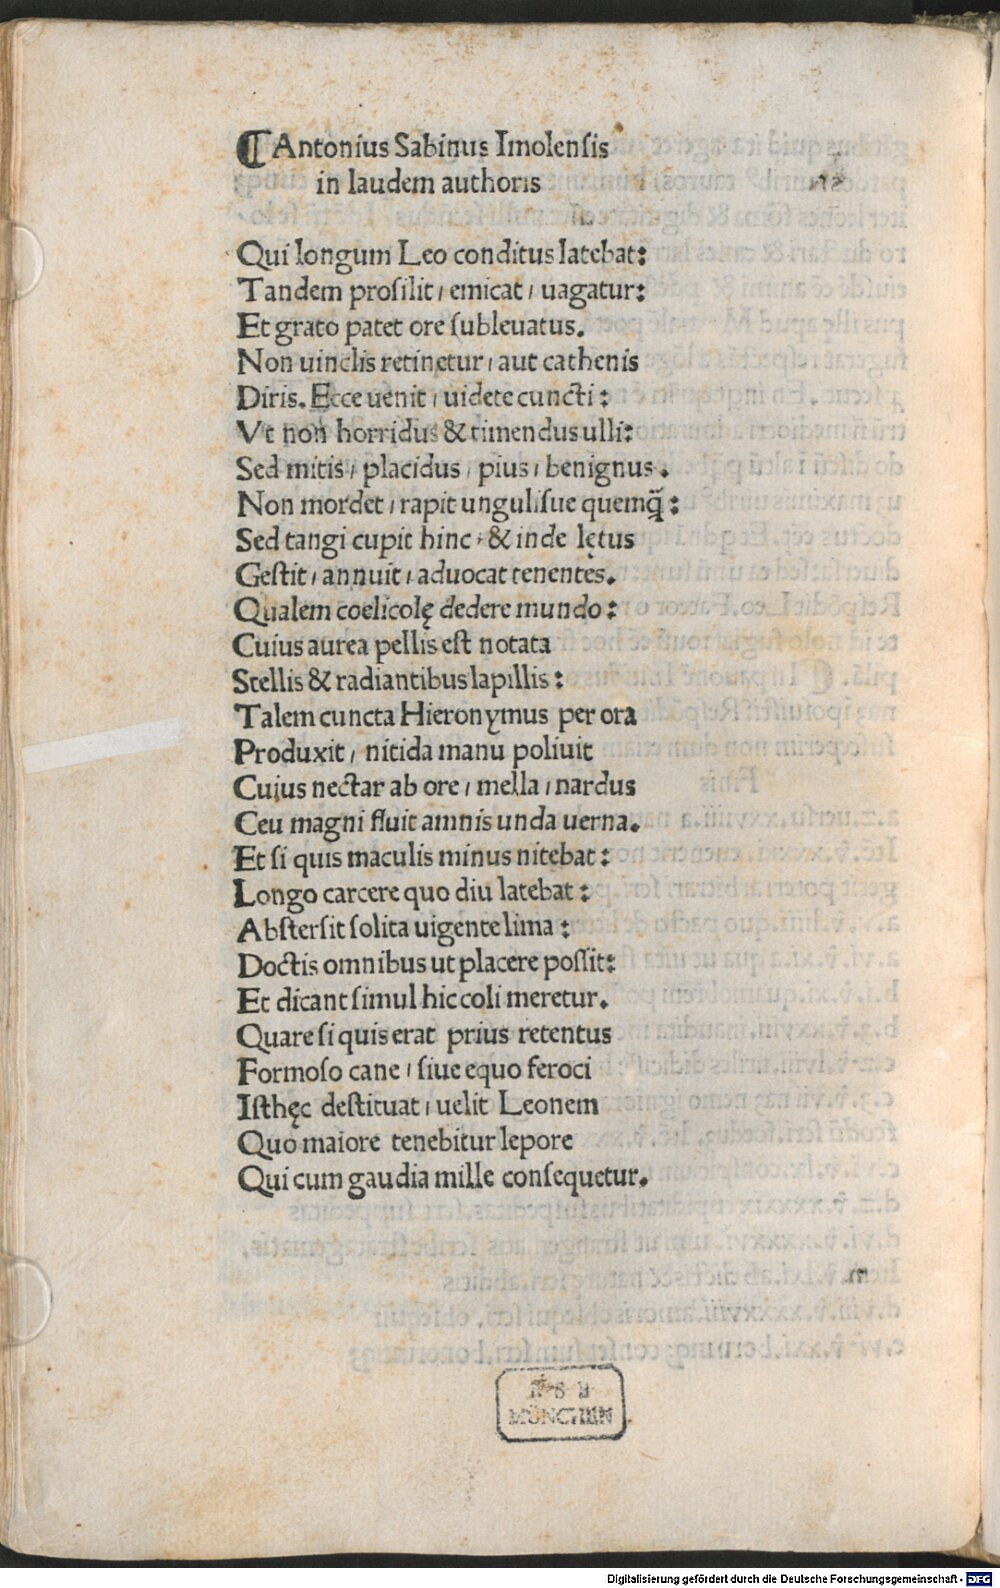 ¶ Antonius Sabinus Imolensis
in laudem authoris
Qui longum Leo conditus latebat:
Tandem prosilit, emicat, uagatur:
Et grato patet ore subleuatus.
Non uinclis retinetur, aut cathenis
Diris. Ecce uenit, uidete cuncti:
Vt non horridus & timendus ulli:
Sed mitis, placidus, pius, benignus.
Non mordet, rapit ungulisue quemq̃:
Sed tangi cupit hinc, & inde lętus
Gestit, annuit, aduocat tenentes.
Qualem coelicolę dedere mundo:
Cuius aurea pellis est notata
Stellis & radiantibus lapillis:
Talem cuncta Hieronymus per ora
Produxit, nitida manu poliuit
Cuius nectar ab ore, mella, nardus
Ceu magni fluit amnis unda uerna.
Et si quis maculis minus nitebat:
Longo carcere quo diu latebat:
Abstersit solita uigente lima:
Doctis omnibus ut placere possit:
Et dicant simul hic coli meretur.
Quare si quis erat prius retentus
Formoso cane, siue equo feroci
Isthęc destituat, uelit Leonem
Quo maiore tenebitur lepore
Qui cum gaudia mille consequetur.
B S B
MÜNCHEN
Digitalisierung gefördert durch die Deutsche Forschungsgemeinschaft - DFG